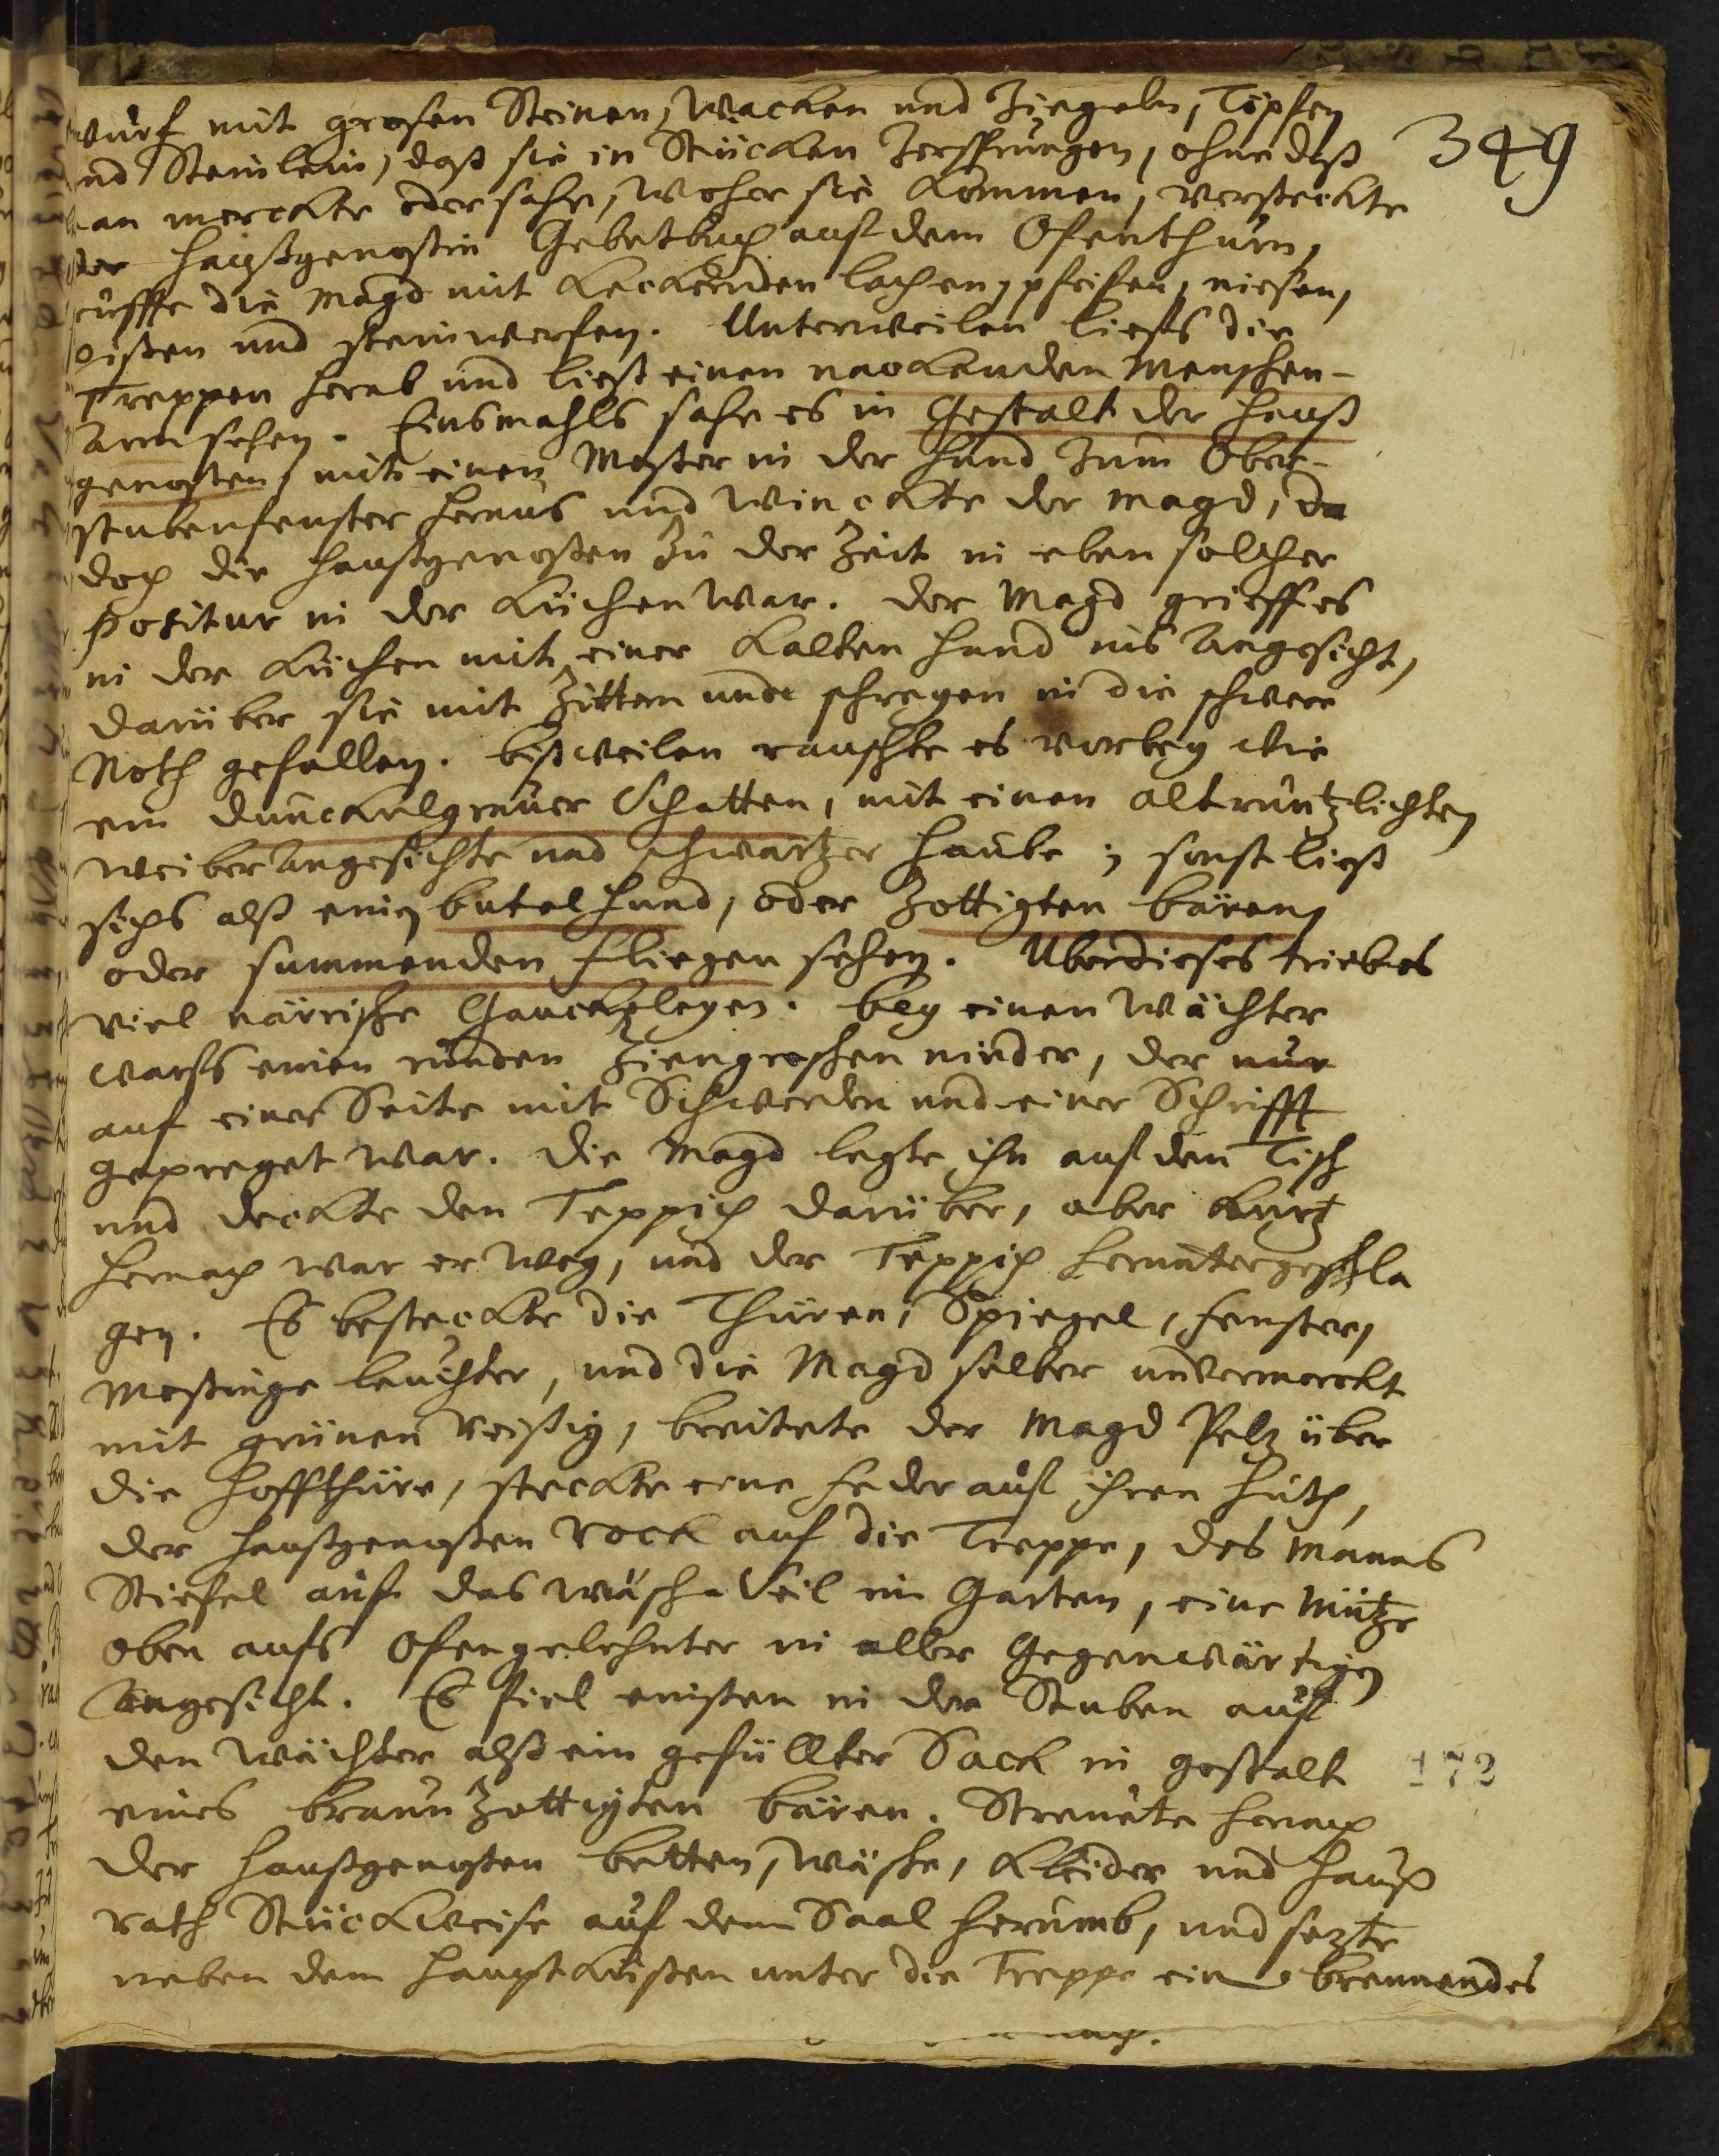 349
wurf mit großen Steinen, Wacken und Ziegeln, Töpfen
und Steinlein, daß sie in Stücken zersprungen, ohne daß
man merckte oder sahe, woher sie kommen, versteckte
der Haußgenoßin Gebetbuch auf dem Ofenthurn,
äffte die Magd mit keckernden lachen, pfeifen, niesen,
pißen und steinwerfen. Unterweilen lieffs die
Treppen herab und ließ einen nackenden Menschen-
Arm sehen. Einsmahls sahe es in Gestalt der Hauß
genoßen, mit einen Meßer in der Hand zum Ober-
stubenfenster heraus und winckte der Magd, da
doch die Haußgenoßen zu der Zeit in eben solcher
positur in der Küchen war. Der Magd grieff es
in der Küchen mit einer kalten Hand ins Angesicht,
darüber sie mit Zittern und schreyen in die schwere
Noth gefallen. Bißweilen rauschte es vorbey wie
ein dunckelgrauer Schatten, mit einen altruntzlichten
Weiber Angesichte und schwartzer Haube; sonst ließ
sichs alß einen butel Hund, oder zottigten Bären,
oder summenden Fliegen sehen. Uberdieses trieb es
viel närrische Gauckeleyen. Bey einen Wächter
warfs einen runden Ziengroschen nieder, der nur
auf einer Seite mit Schwerden und einer Schrifft
gepreget war. Die Magd legte ihn auf den Tisch
und deckte den Teppich darüber, aber kurtz
hernach war er weg, und der Teppich heruntergeschla
gen. Es besteckte die Thüren, Spiegel, Fenster,
Meßinge leuchter, und die Magd selber unvermerckt
mit grünen Reißig, breitete der Magd Pelz über
die Hoffthüre, steckte eine Feder auf ihren Huth,
der Haußgenoßen Rock auf die Treppe, des Manns
Stiefel auf das Wäsche Seil im Garten, eine Mütze
oben aufs Ofengelehnter in aller Gegenwärtigen
Angesicht. Es fiel einsten in der Stuben auf
den Wächter alß ein gefüllter Sack in gestalt
172
eines braun zottigten Bären. Streuete hernach
der Haußgenoßen Betten, Wäsche, Kleider und Hauß
rath Stückweise auf dem Saal herumb, und sezte
neben dem Hauptküßen unter die Treppe ein brennendes